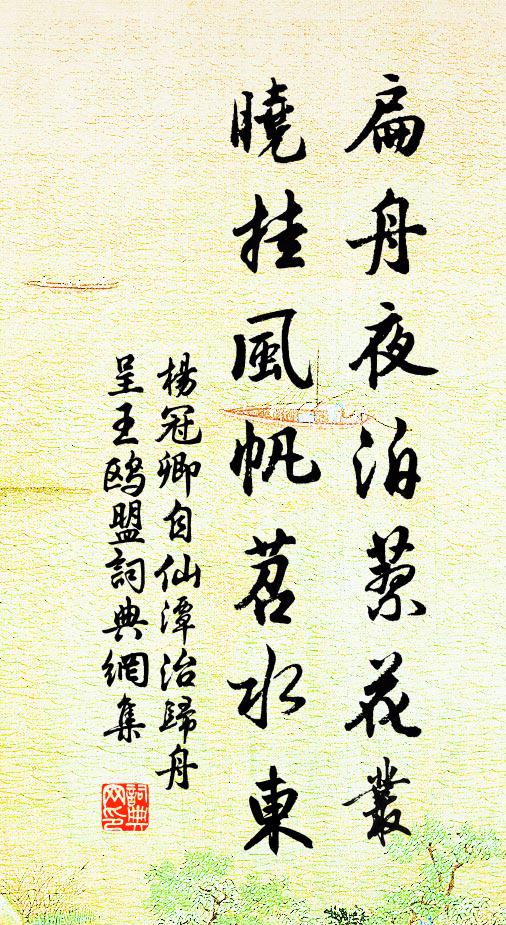 扁舟夜泊蓼花叢
曉挂風帆苕水東
楊冠卿自仙潭治歸舟
呈王鷗盟詞典網集
詞典网印